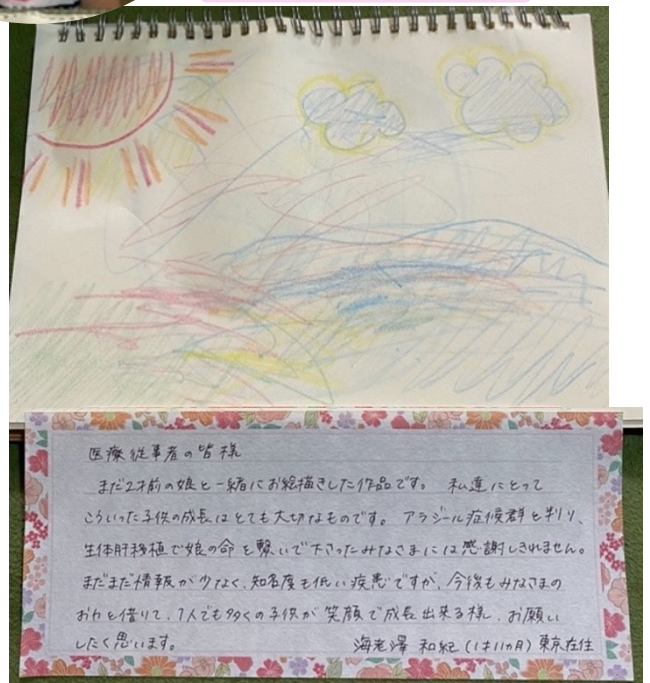 医療従事者の皆様
まだ2才前の娘と一緒にお絵描きした作品です。 私達にとって
こういった子供の成長はとても大切なものです。 アラジール症候群と判り、
生体肝移植で娘の命を繋いで下さったみなさまには感謝しきれません。
まだまだ情報が少なく、知名度も低い疾患ですが、今後もみなさまの
お力を借りて、1人でも多くの子供が笑顔で成長出来る様、お願い
したく思います。 海老澤 和紀 (1才11ヵ月) 東京在住